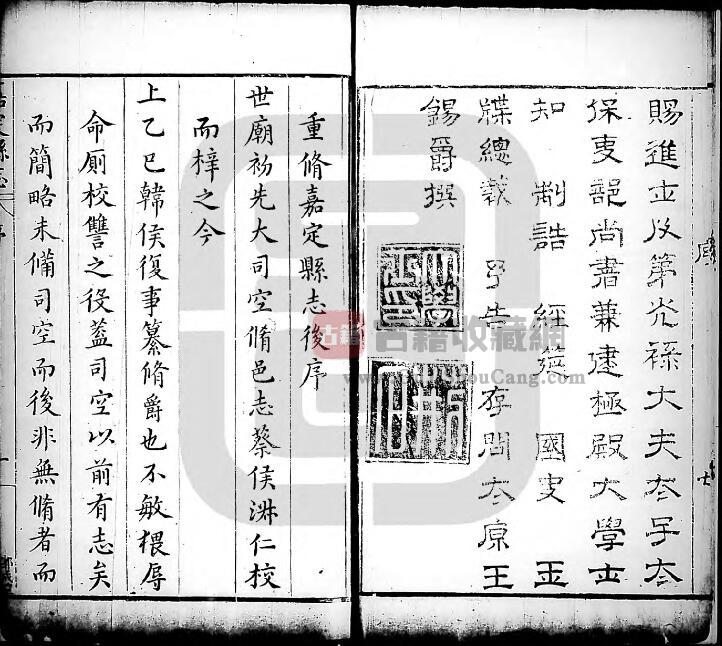 賜進士及第光祿大夫太子太
保吏部尚書兼建極殿大學士
知 制誥 經筵 國史 玉
牒總裁 予告 存問太原王
錫爵撰
序
重脩嘉定縣志後序
世廟初先大司空脩邑志蔡侯 仁校
而梓之今
上乙巳韓侯復事纂脩爵也不敏猥辱
命厠校讐之役葢司空以前有志矣
而簡略未備司空而後非無脩者而
古籍收藏網